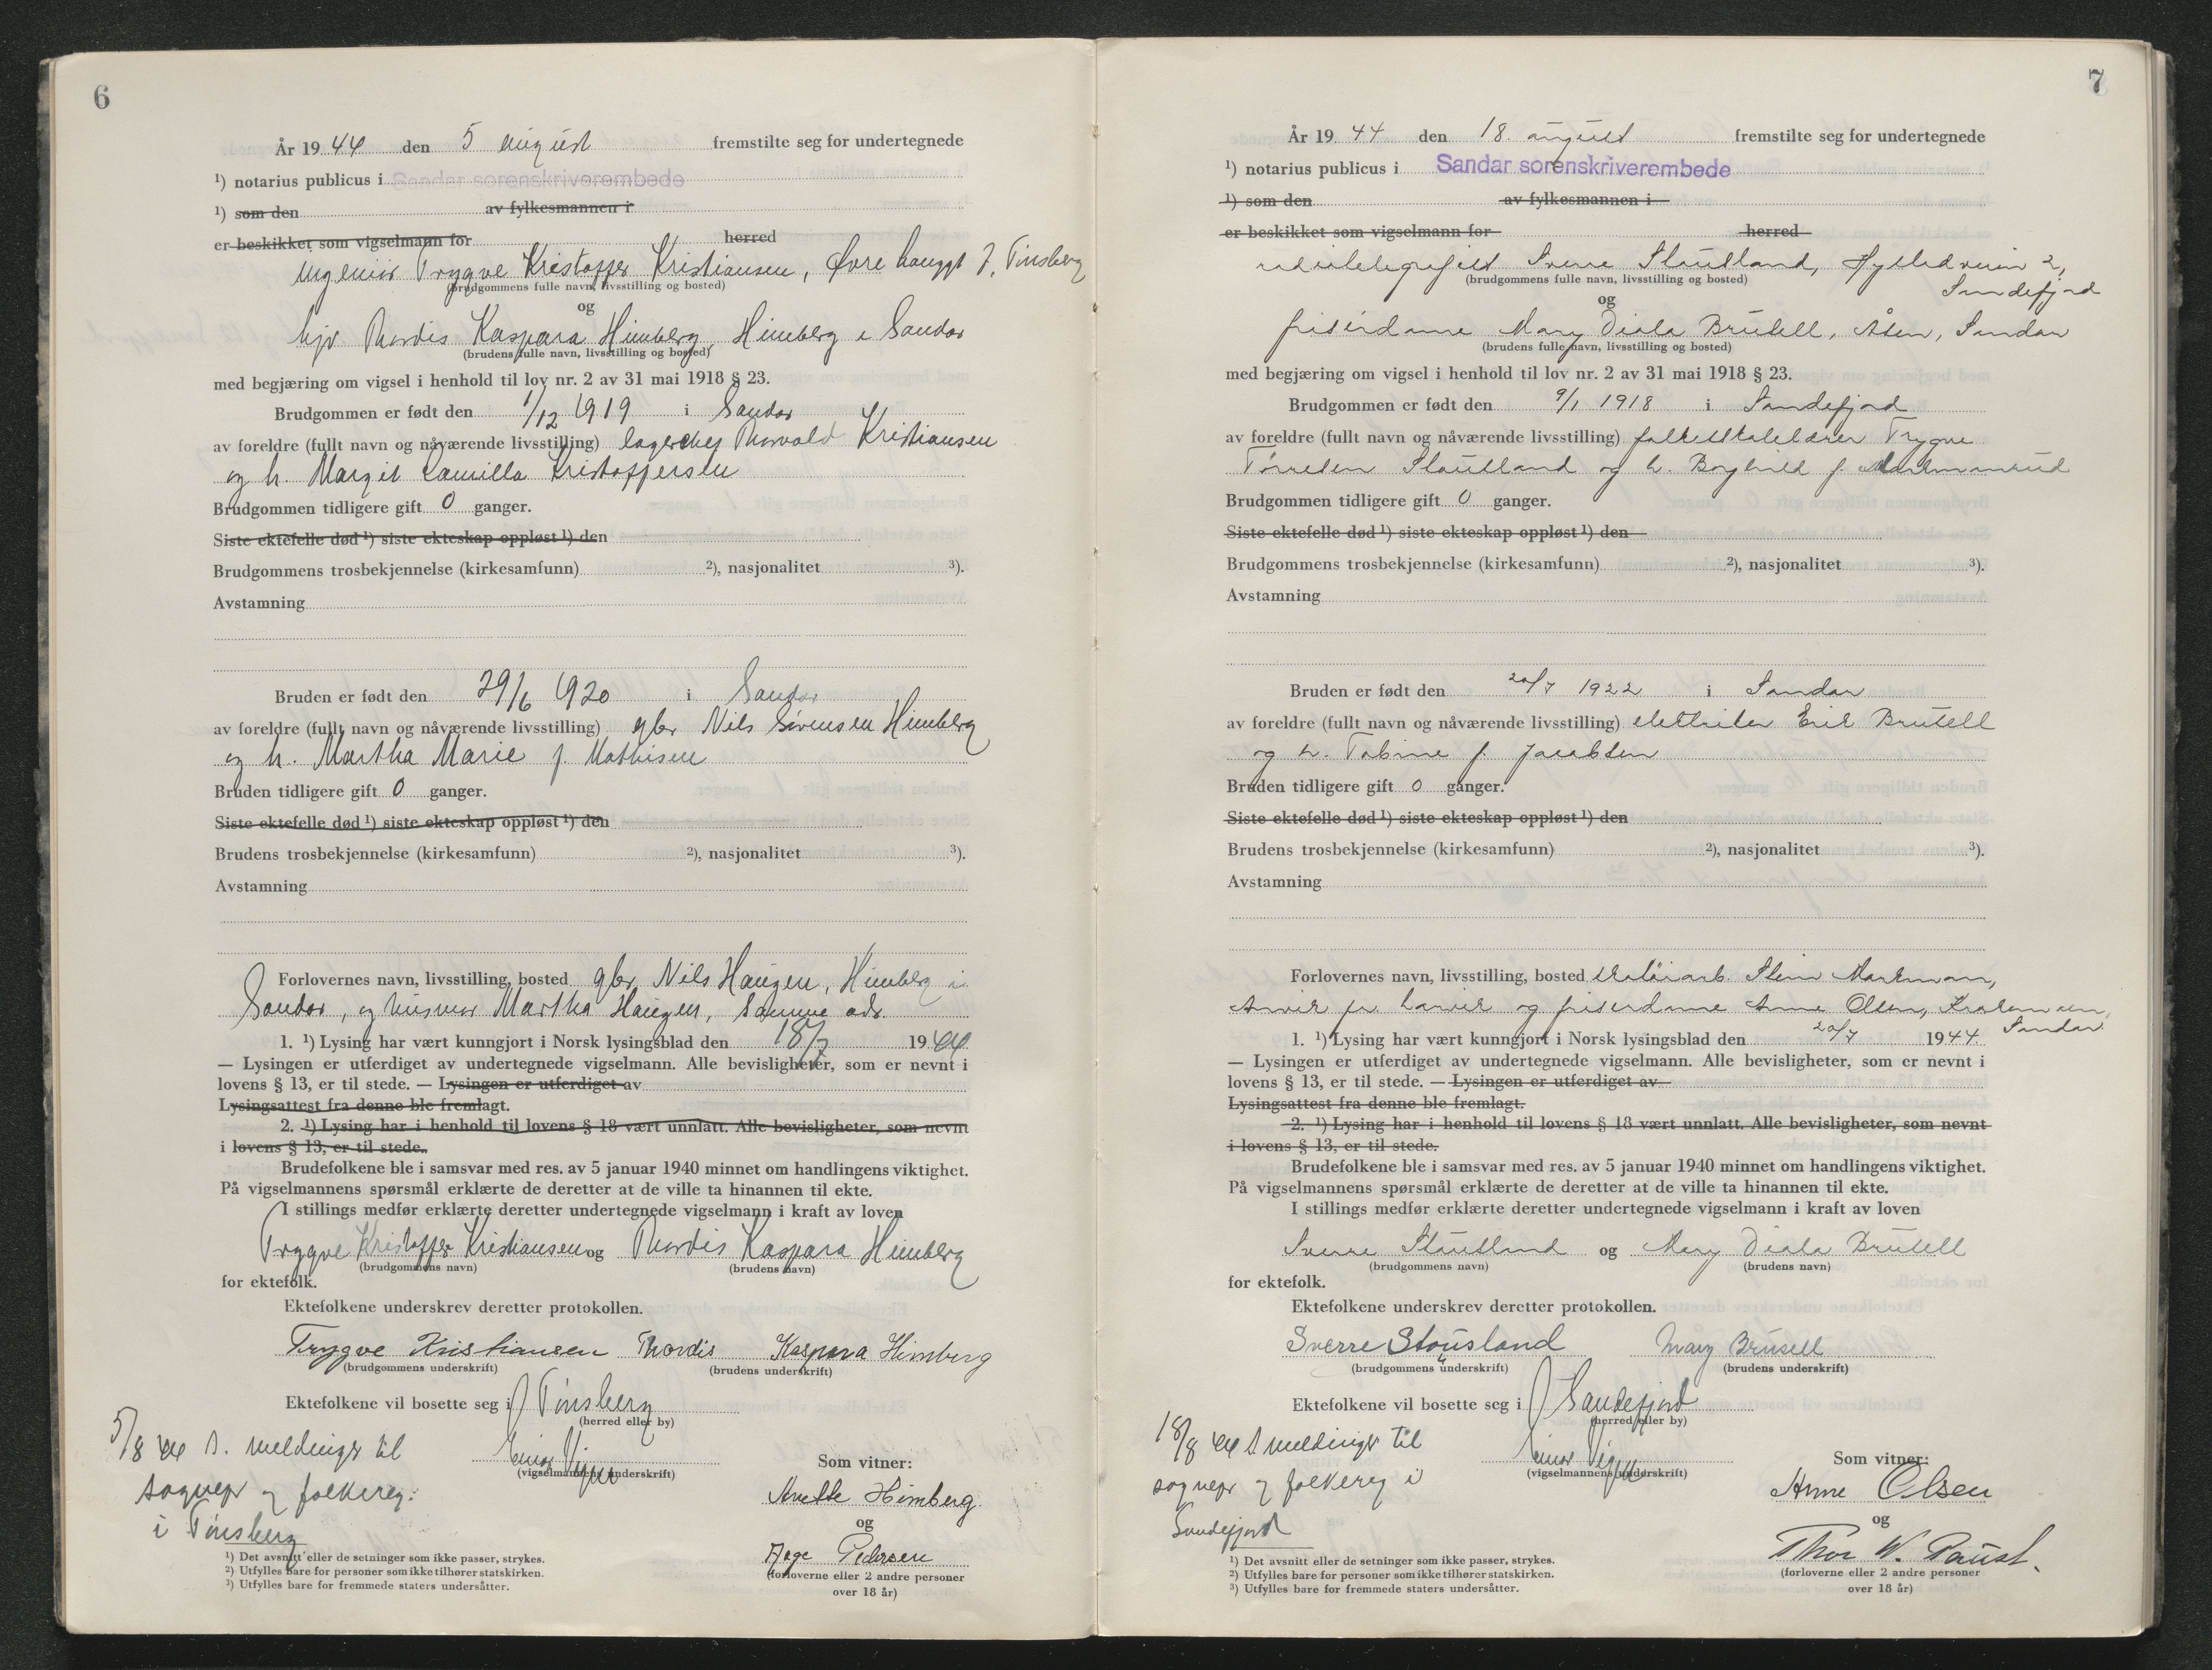 6
År 19 44 den 5 august fremstilte seg for undertegnede
¹) notarius publicus i Sandar sorenskriverembede
¹) som den av fylkesmannen i
er beskikket som vigselmann for herred
ingeniør Trygve Kristoffer Kristiansen, Øvre Langgt 7, Tønsberg
(brudgommens fulle navn, livsstilling og bosted)
og
hjv. Thordis Kaspara Himberg, Himberg i Sandar
(brudens fulle navn, livsstilling og bosted)
med begjæring om vigsel i henhold til lov nr. 2 av 31 mai 1918 § 23.
Brudgommen er født den 1/12 1919 i Sandar
av foreldre (fullt navn og nåværende livsstilling) lagerchef Thorvald Kristiansen
og h. Margit Camilla Kristoffersen
Brudgommen tidligere gift 0 ganger.
Siste ektefelle død ¹) siste ekteskap oppløst ¹) den
Brudgommens trosbekjennelse (kirkesamfunn) ²), nasjonalitet ³).
Avstamning
Bruden er født den 29/6 1920 i Sandar
av foreldre (fullt navn og nåværende livsstilling) gbr Nils Sørensen Himberg
og h. Martha Marie f. Mathisen
Bruden tidligere gift 0 ganger.
Siste ektefelle død ¹) siste ekteskap oppløst ¹) den
Brudens trosbekjennelse (kirkesamfunn) ²), nasjonalitet ³).
Avstamning
Forlovernes navn, livsstilling, bosted gbr. Nils Haugen, Himberg i
Sandar, og husmor Martha Haugen, samme adr.
1. ¹) Lysing har vært kunngjort i Norsk lysingsblad den 18/7 1944
— Lysingen er utferdiget av undertegnede vigselmann. Alle bevisligheter, som er nevnt i
lovens § 13, er til stede. — Lysingen er utferdiget av
Lysingsattest fra denne ble fremlagt.
2. ¹) Lysing har i henhold til lovens § 18 vært unnlatt. Alle bevisligheter, som nevnt
i lovens § 13, er til stede.
Brudefolkene ble i samsvar med res. av 5 januar 1940 minnet om handlingens viktighet.
På vigselmannens spørsmål erklærte de deretter at de ville ta hinannen til ekte.
I stillings medfør erklærte deretter undertegnede vigselmann i kraft av loven
Trygve Kristoffer Kristiansen og Thordis Kaspara Himberg
(brudgommens navn) (brudens navn)
for ektefolk.
Ektefolkene underskrev deretter protokollen.
Trygve Kristiansen Thordis Kaspara Himberg
(brudgommens underskrift) (brudens underskrift)
Ektefolkene vil bosette seg i Tønsberg
(herred eller by)
5/8 44 s. meldinger til
sognepr og folkereg.
i Tønsberg
Einar
(vigselmannens underskrift)
Som vitner:
Anette Himberg.
og
Aage Pedersen
(forloverne eller 2 andre personer
over 18 år)
¹) Det avsnitt eller de setninger som ikke passer, strykes.
²) Utfylles bare for personer som ikke tilhører statskirken.
³) Utfylles bare for fremmede staters undersåtter.
7
År 19 44 den 18. august fremstilte seg for undertegnede
¹) notarius publicus i Sandar sorenskriverembede
¹) som den av fylkesmannen i
er beskikket som vigselmann for herred
radiotelegrafist Sverre Stousland, Hystadveien 2,
Sandefjord
(brudgommens fulle navn, livsstilling og bosted)
og
frisørdame Mary Diala Brusell, Åsen, Sandar
(brudens fulle navn, livsstilling og bosted)
med begjæring om vigsel i henhold til lov nr. 2 av 31 mai 1918 § 23.
Brudgommen er født den 9/1 1918 i Sandefjord
av foreldre (fullt navn og nåværende livsstilling) folkeskolelærer Trygve
Tørresen Stousland og h. Borghild f.
Brudgommen tidligere gift 0 ganger.
Siste ektefelle død ¹) siste ekteskap oppløst ¹) den
Brudgommens trosbekjennelse (kirkesamfunn) ²), nasjonalitet ³).
Avstamning
Bruden er født den 20/7 1922 i Sandar
av foreldre (fullt navn og nåværende livsstilling) elektriker Erik Brusell
og h. Tobine f. Jacobsen
Bruden tidligere gift 0 ganger.
Siste ektefelle død ¹) siste ekteskap oppløst ¹) den
Brudens trosbekjennelse (kirkesamfunn) ²), nasjonalitet ³).
Avstamning
Forlovernes navn, livsstilling, bosted skotøiarb. Stein Markman,
pr Larvik og frisørdame Anne Olsen,
Sandar
1. ¹) Lysing har vært kunngjort i Norsk lysingsblad den 20/7 1944.
— Lysingen er utferdiget av undertegnede vigselmann. Alle bevisligheter, som er nevnt i
lovens § 13, er til stede. — Lysingen er utferdiget av
Lysingsattest fra denne ble fremlagt.
2. ¹) Lysing har i henhold til lovens § 18 vært unnlatt. Alle bevisligheter, som nevnt
i lovens § 13, er til stede.
Brudefolkene ble i samsvar med res. av 5 januar 1940 minnet om handlingens viktighet.
På vigselmannens spørsmål erklærte de deretter at de ville ta hinannen til ekte.
I stillings medfør erklærte deretter undertegnede vigselmann i kraft av loven
Sverre Stousland og Mary Diala Brusell
(brudgommens navn) (brudens navn)
for ektefolk.
Ektefolkene underskrev deretter protokollen.
Sverre Stousland Mary Brusell
(brudgommens underskrift) (brudens underskrift)
Ektefolkene vil bosette seg i Sandefjord
(herred eller by)
18/8 44 s meldinger til
sognepr og folkereg i
Sandefjord
Einar
(vigselmannens underskrift)
Som vitner:
Anne Olsen
og
Thor W. Paust.
(forloverne eller 2 andre personer
over 18 år)
¹) Det avsnitt eller de setninger som ikke passer, strykes.
²) Utfylles bare for personer som ikke tilhører statskirken.
³) Utfylles bare for fremmede staters undersåtter.